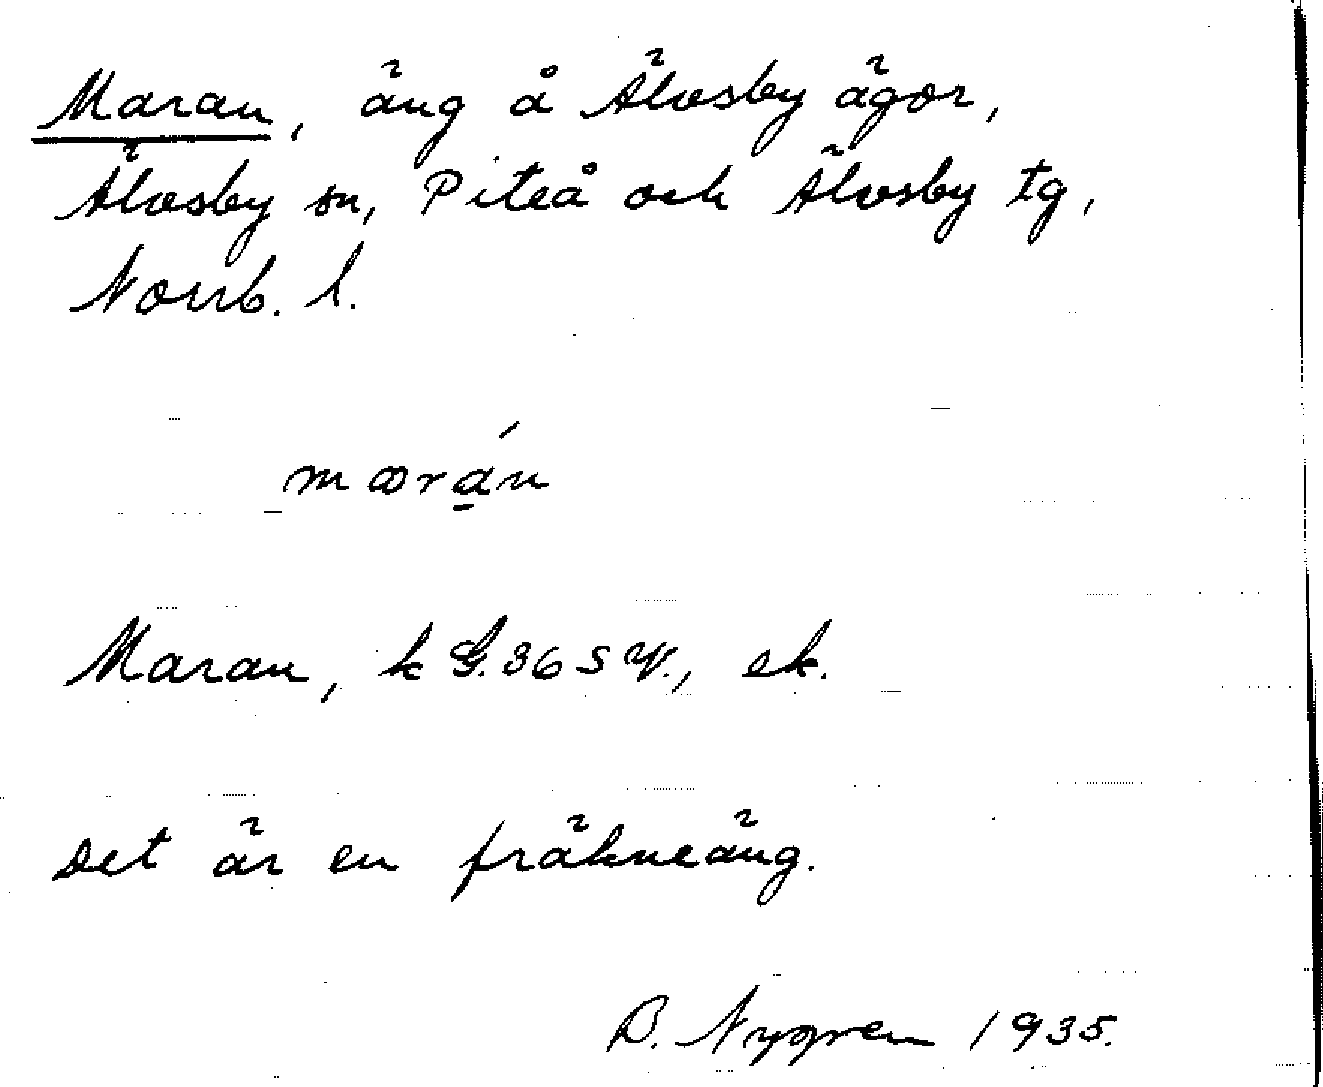 Maran, äng å Älvsby ägor,
Älvsby sn, Piteå och Älvsby tg,
Norrb. l.
mæra̱ń
Maran, k G.365 Ψ., ek.
Det är en fräkneäng.
B. Nygren 1935.